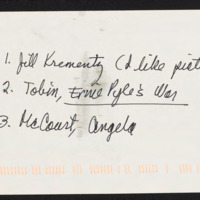 1. Jill Krementz (I'd like pict
2. Tobin, Ernie Pyle's War
3. McCourt, Angela